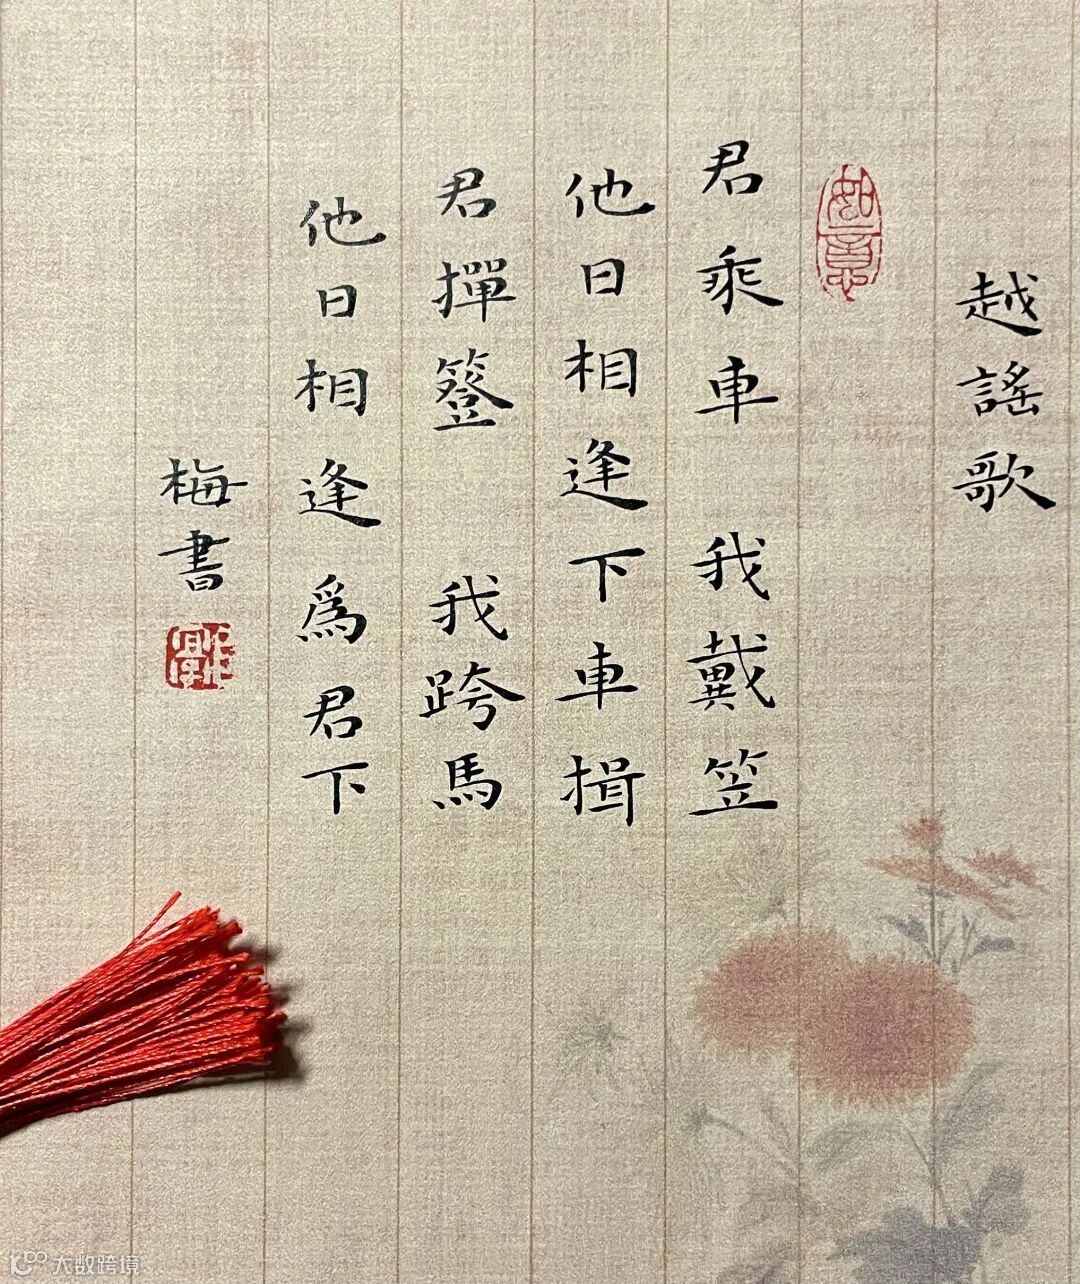 越謠歌
如意
君乘車 我戴笠
他日相逢下車揖
君撣簦 我跨馬
他日相逢爲君下
梅書
大数跨境